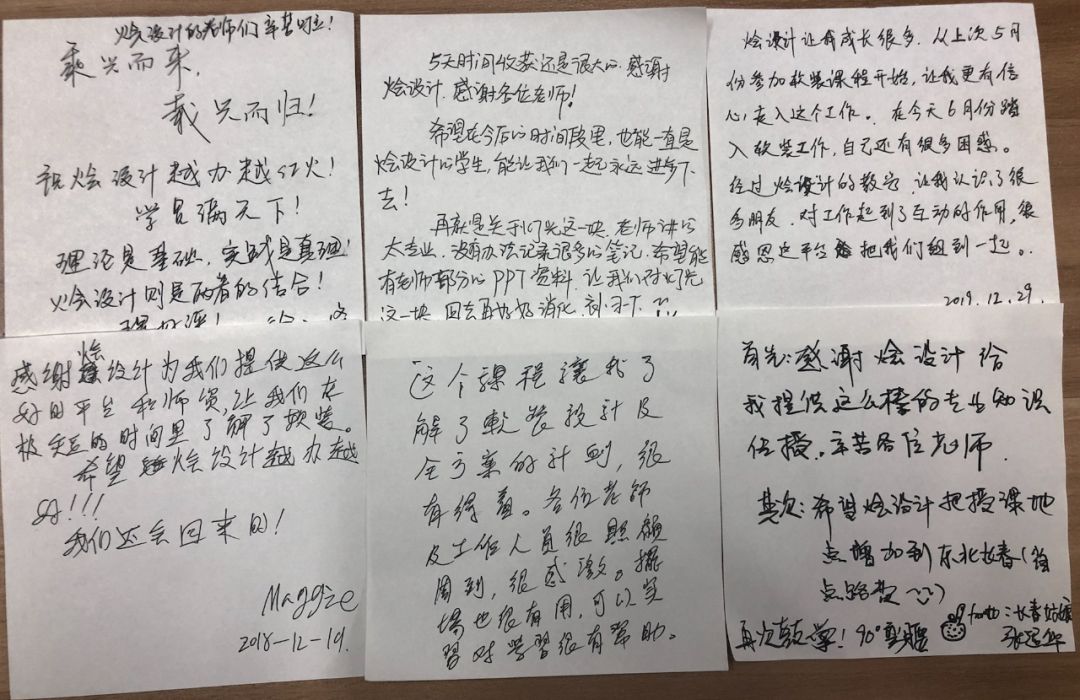 烩设计的老师们辛苦啦!
乘兴而来,
载兴而归!
祝烩设计越办越红火!
学员满天下!
理论是基础,实践是真理!
烩设计则是两者的结合!
5天时间收获还是很大的.感谢
烩设计.感谢各位老师!
希望在今后的时间段里,也能一直是
烩设计的学生,能让我们一起永远进步下
去!
再就是关于灯光这一块.老师讲的
太专业.没有办法记录很多的笔记.希望能
有老师部分的PPT资料.让我们对灯光
这一块.回去再好好消化.
烩设计让我成长很多.从上次5月
份参加软装课程开始,让我更有信
心走入这个工作。在今天6月份踏
入软装工作,自己还有很多困惑。
经过烩设计的教学.让我认识了很
多朋友.对工作起到了互动的作用,很
感恩这平台把我们组到一起。
2019.12.29.
感谢烩设计为我们提供这么
好的平台和师资,让我们在
极短的时间里了解了软装。
希望烩设计越办越
好!!!
我们还会回来的!
Maggie
2018-12-19.
这个課程讓我了
解了軟裝設計及
全方案的計劃,很
有得着。各位老師
及工作人員很照顧
周到,很感激。擺
場也很有用,可以实
習对学習很有幫助。
首先:感谢烩设计给
我提供这么棒的专业知识
传授.辛苦各位老师.
其次:希望烩设计把授课地
点增加到东北长春(省
点路费
再次 90°